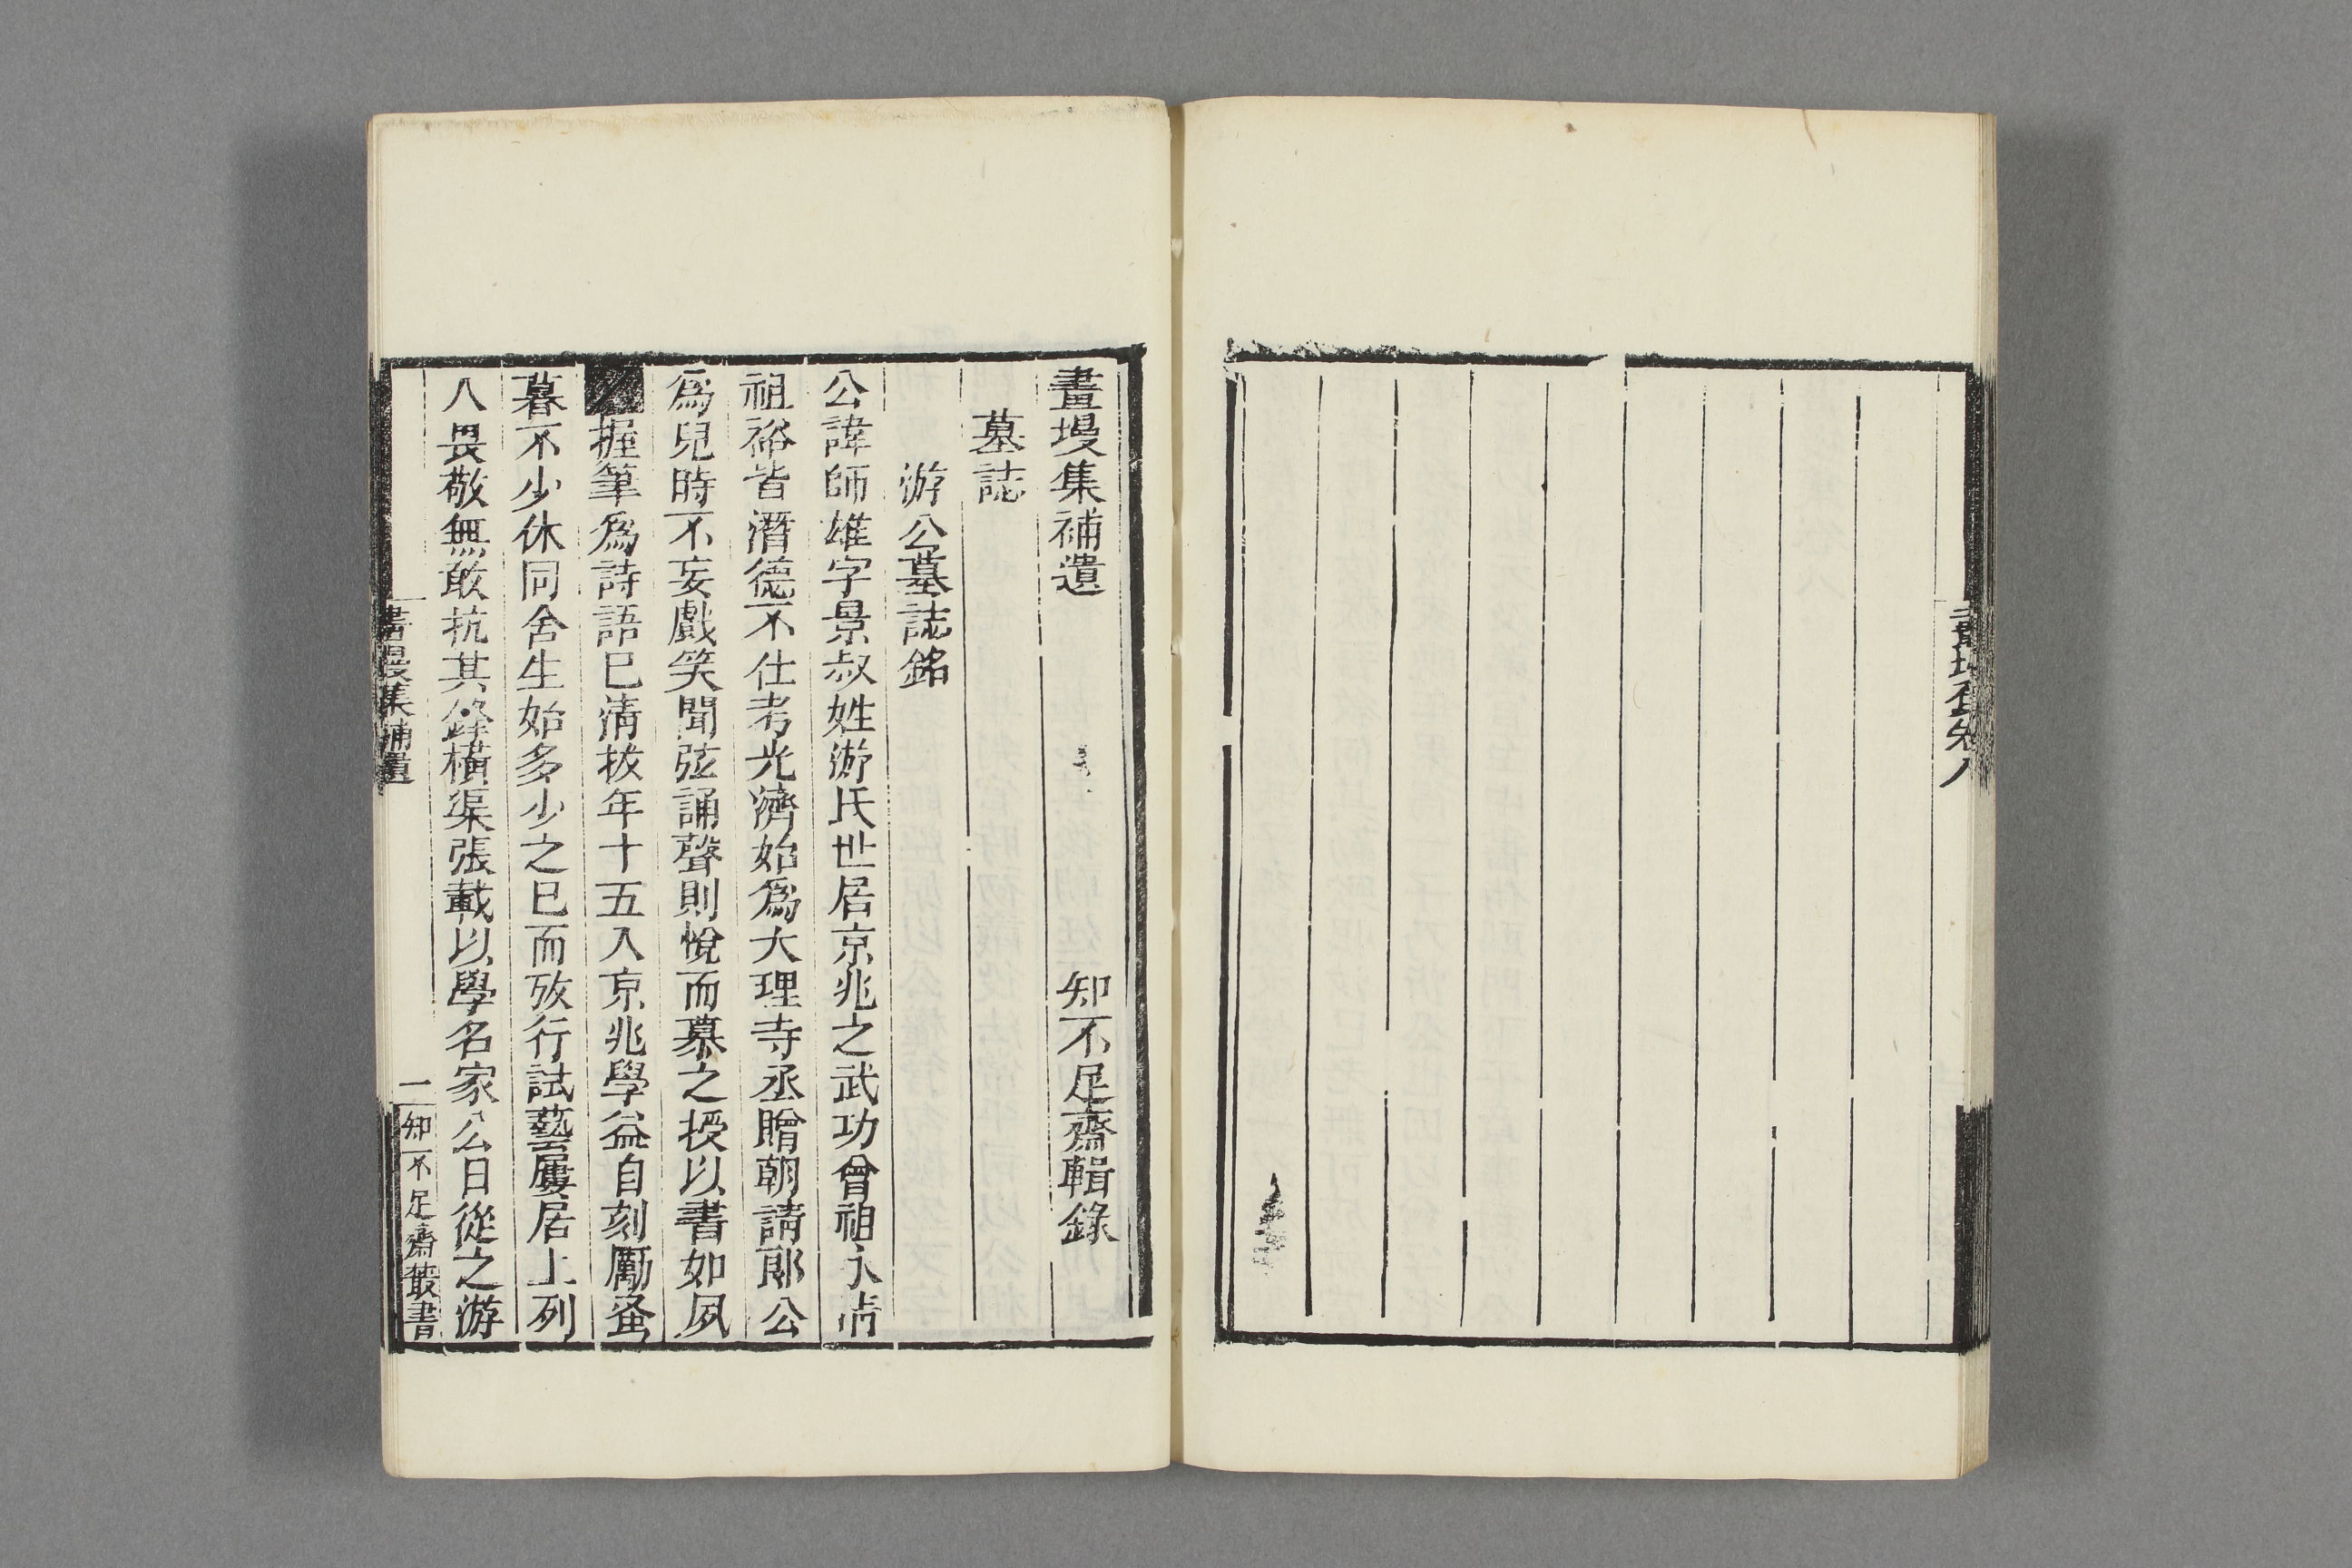 畫墁集卷八
畫墁集補遺 知不足齋輯錄
墓誌
游公墓誌銘
公諱師雄字景叔姓游氏世居京兆之武功曾祖永清
祖裕皆潛德不仕考光濟始爲大理寺丞贈朝請郎公
爲兒時不妄戲笑聞弦誦聲則悅而慕之授以書如夙
握筆爲詩語已淸拔年十五入京兆學益自刻厲蚤
暮不少休同舍生始多少之已而攷行試藝屢居上列
人畏敬無敢抗其鋒橫渠張載以學名家公日從之游
畫墁集補遺
一 知不足齋叢書